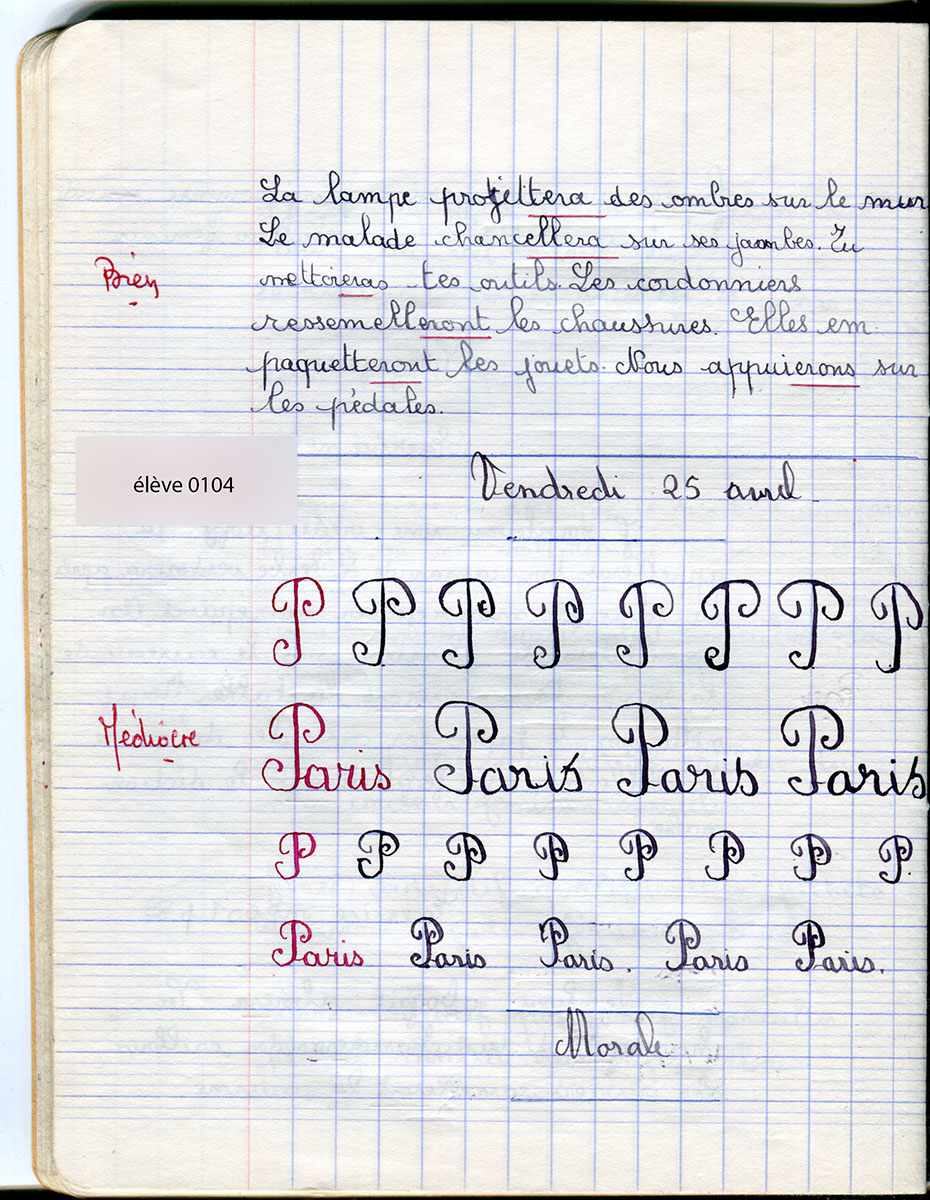 La lampe projettera des ombres sur le mur
Le malade chancellera sur ses jambes. Tu
Bien
nettoieras tes outils. Les cordonniers
ressemelleront les chaussures. Elles em
paquetteront les jouets. Nous appuierons sur
les pédales.
élève 0104
Vendredi 25 avril
P P P P P P P P
Médiocre
Paris Paris Paris Paris
P P P P P P P P
Paris Paris Paris. Paris Paris.
Morale